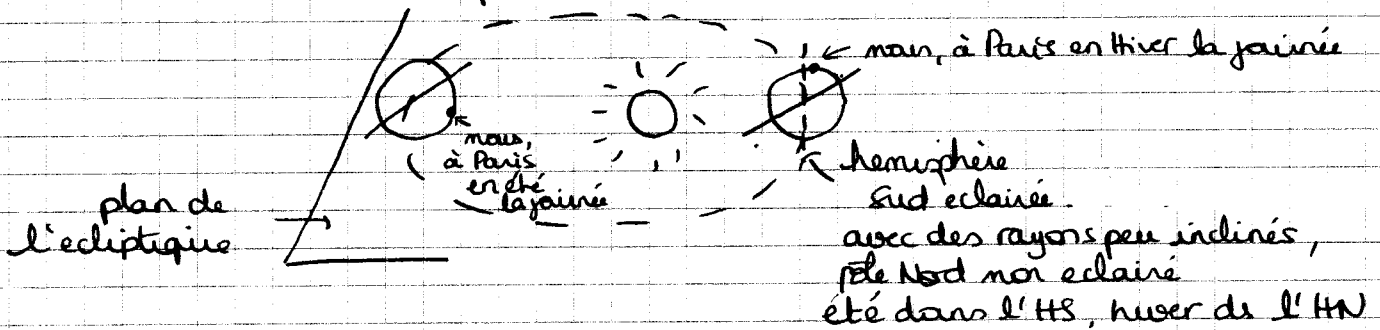 nous, à Paris en Hiver la journée
nous,
à Paris
en été
la journée
plan de
l'ecliptique
hemisphère
Sud eclairée.
avec des rayons peu inclinés,
pôle Nord non eclairé
été dans l'HS, hiver ds l'HN